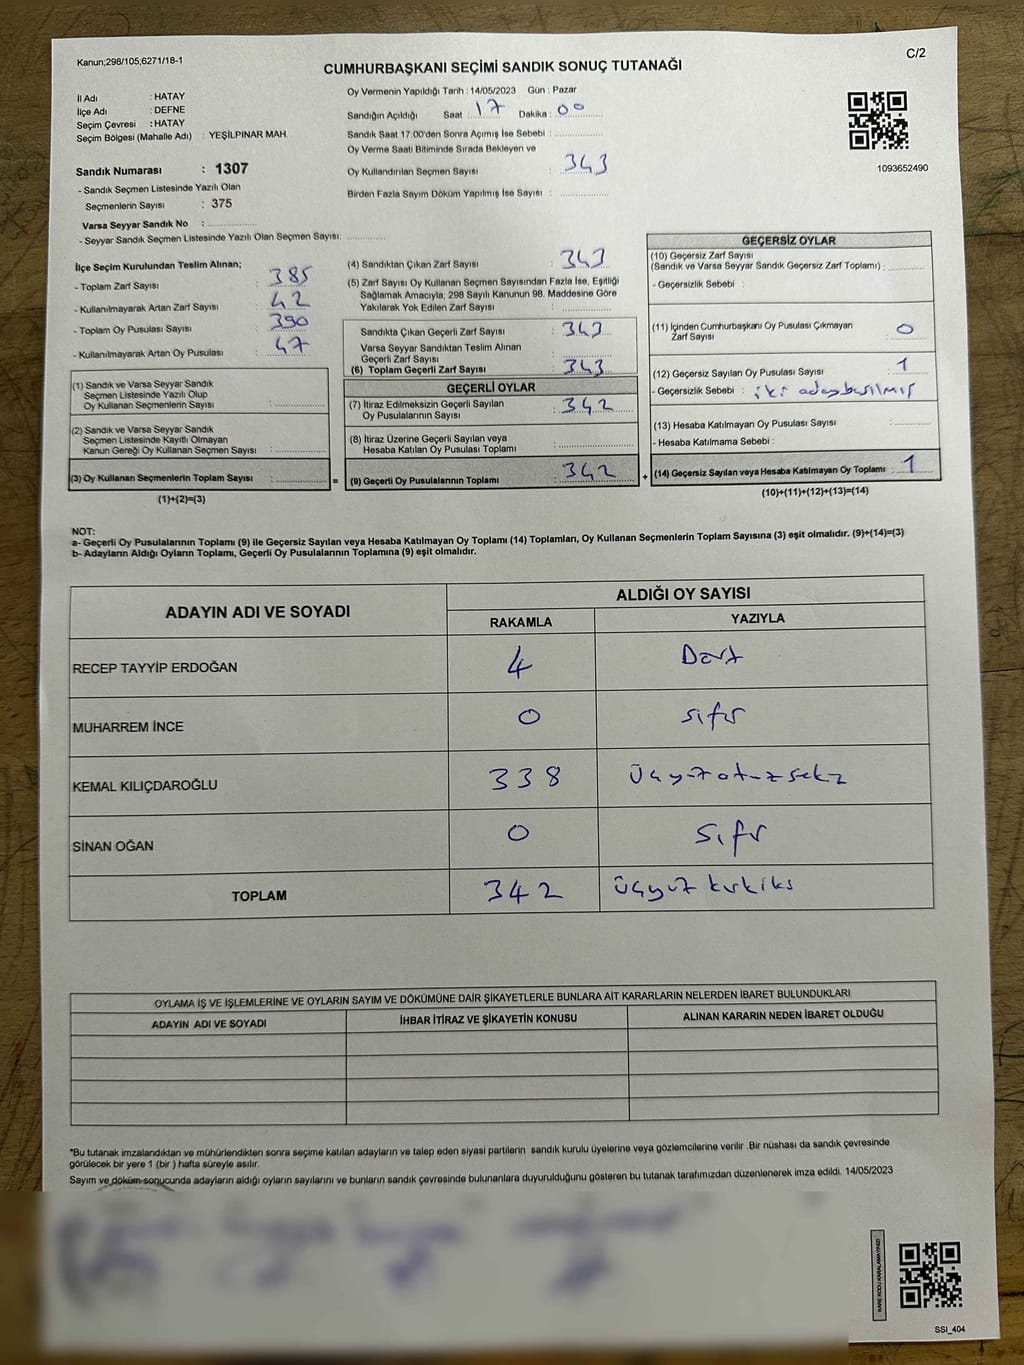 Kanun;298/105;6271/18-1
C/2
CUMHURBAŞKANI SEÇİMİ SANDIK SONUÇ TUTANAĞI
İl Adı : HATAY
İlçe Adı : DEFNE
Seçim Çevresi : HATAY
Seçim Bölgesi (Mahalle Adı) : YEŞİLPINAR MAH.
Sandık Numarası : 1307
- Sandık Seçmen Listesinde Yazılı Olan
Seçmenlerin Sayısı : 375
Varsa Seyyar Sandık No :
- Seyyar Sandık Seçmen Listesinde Yazılı Olan Seçmen Sayısı:
Oy Vermenin Yapıldığı Tarih : 14/05/2023 Gün : Pazar
Sandığın Açıldığı Saat : 17 Dakika : 00
Sandık Saat 17.00'den Sonra Açımış İse Sebebi :
Oy Verme Saati Bitiminde Sırada Bekleyen ve
Oy Kullandırılan Seçmen Sayısı : 343
Birden Fazla Sayım Döküm Yapılmış İse Sayısı :
1093652490
İlçe Seçim Kurulundan Teslim Alınan;
- Toplam Zarf Sayısı : 385
- Kullanılmayarak Artan Zarf Sayısı : 42
- Toplam Oy Pusulası Sayısı : 390
- Kullanılmayarak Artan Oy Pusulası : 47
(1) Sandık ve Varsa Seyyar Sandık
Seçmen Listesinde Yazılı Olup
Oy Kullanan Seçmenlerin Sayısı :
(2) Sandık ve Varsa Seyyar Sandık
Seçmen Listesinde Kayıtlı Olmayan
Kanun Gereği Oy Kullanan Seçmen Sayısı :
(3) Oy Kullanan Seçmenlerin Toplam Sayısı :
(1)+(2)=(3)
=
(4) Sandıktan Çıkan Zarf Sayısı : 343
(5) Zarf Sayısı Oy Kullanan Seçmen Sayısından Fazla İse, Eşitliği
Sağlamak Amacıyla; 298 Sayılı Kanunun 98. Maddesine Göre
Yakılarak Yok Edilen Zarf Sayısı :
Sandıkta Çıkan Geçerli Zarf Sayısı : 343
Varsa Seyyar Sandıktan Teslim Alınan
Geçerli Zarf Sayısı :
(6) Toplam Geçerli Zarf Sayısı : 343
GEÇERLİ OYLAR
(7) İtiraz Edilmeksizin Geçerli Sayılan
Oy Pusulalarının Sayısı : 342
(8) İtiraz Üzerine Geçerli Sayılan veya
Hesaba Katılan Oy Pusulası Toplamı :
(9) Geçerli Oy Pusulalarının Toplamı : 342
+
GEÇERSİZ OYLAR
(10) Geçersiz Zarf Sayısı
(Sandık ve Varsa Seyyar Sandık Geçersiz Zarf Toplamı) :
- Geçersizlik Sebebi :
(11) İçinden Cumhurbaşkanı Oy Pusulası Çıkmayan
Zarf Sayısı : 0
(12) Geçersiz Sayılan Oy Pusulası Sayısı : 1
- Geçersizlik Sebebi : iki aday basılmış
(13) Hesaba Katılmayan Oy Pusulası Sayısı :
- Hesaba Katılmama Sebebi :
(14) Geçersiz Sayılan veya Hesaba Katılmayan Oy Toplamı : 1
(10)+(11)+(12)+(13)=(14)
NOT:
a- Geçerli Oy Pusulalarının Toplamı (9) ile Geçersiz Sayılan veya Hesaba Katılmayan Oy Toplamı (14) Toplamları, Oy Kullanan Seçmenlerin Toplam Sayısına (3) eşit olmalıdır. (9)+(14)=(3)
b- Adayların Aldığı Oyların Toplamı, Geçerli Oy Pusulalarının Toplamına (9) eşit olmalıdır.
ADAYIN ADI VE SOYADI
ALDIĞI OY SAYISI
RAKAMLA YAZIYLA
RECEP TAYYİP ERDOĞAN 4 Dört
MUHARREM İNCE 0 sıfır
KEMAL KILIÇDAROĞLU 338 Üçyüzotuzsekz
SİNAN OĞAN 0 Sıfır
TOPLAM 342 Üçyüz kırkiki
OYLAMA İŞ VE İŞLEMLERİNE VE OYLARIN SAYIM VE DÖKÜMÜNE DAİR ŞİKAYETLERLE BUNLARA AİT KARARLARIN NELERDEN İBARET BULUNDUKLARI
ADAYIN ADI VE SOYADI İHBAR İTİRAZ VE ŞİKAYETİN KONUSU ALINAN KARARIN NEDEN İBARET OLDUĞU
*Bu tutanak imzalandıktan ve mühürlendikten sonra seçime katılan adayların ve talep eden siyasi partilerin sandık kurulu üyelerine veya gözlemcilerine verilir .Bir nüshası da sandık çevresinde
görülecek bir yere 1 (bir ) hafta süreyle asılır.
Sayım ve döküm sonucunda adayların aldığı oyların sayılarını ve bunların sandık çevresinde bulunanlara duyurulduğunu gösteren bu tutanak tarafımızdan düzenlenerek imza edildi. 14/05/2023
KARE KODU KARALAMAYINIZ!
SSI_404